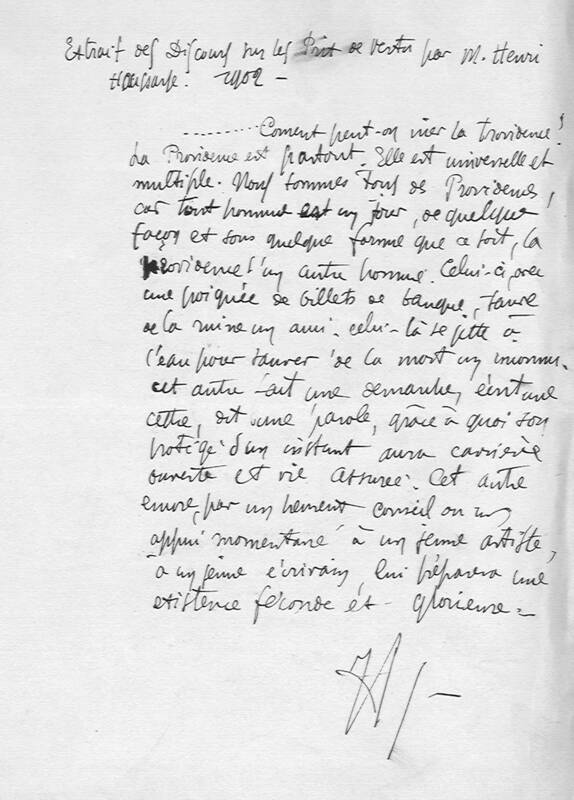 Extrait des Discours sur les Prix de Vertu par M. Henri
Houssaye. 1902 -
......... Coment peut-on nier la Providence?
La Providence est partout. Elle est universelle et
multiple. Nous sommes tous des Providences,
car tout homme est un jour, de quelque
façon et sous quelque forme que ce soit, la
Providence d'un autre homme. Celui-ci, avec
une poignée de billets de banque, sauve
de la ruine un ami. celui-là se jette à
l'eau pour sauver de la mort un inconnu.
cet autre fait une demarche, écrit une
lettre, dit une parole, grâce à quoi son
protégé d'un instant aura carrière
ouverte et vie assurée. Cet autre
encore, par un conseil ou un
appui momentané à un jeune artiste,
à un jeune écrivain, lui prépara une
existence féconde et - glorieuse -